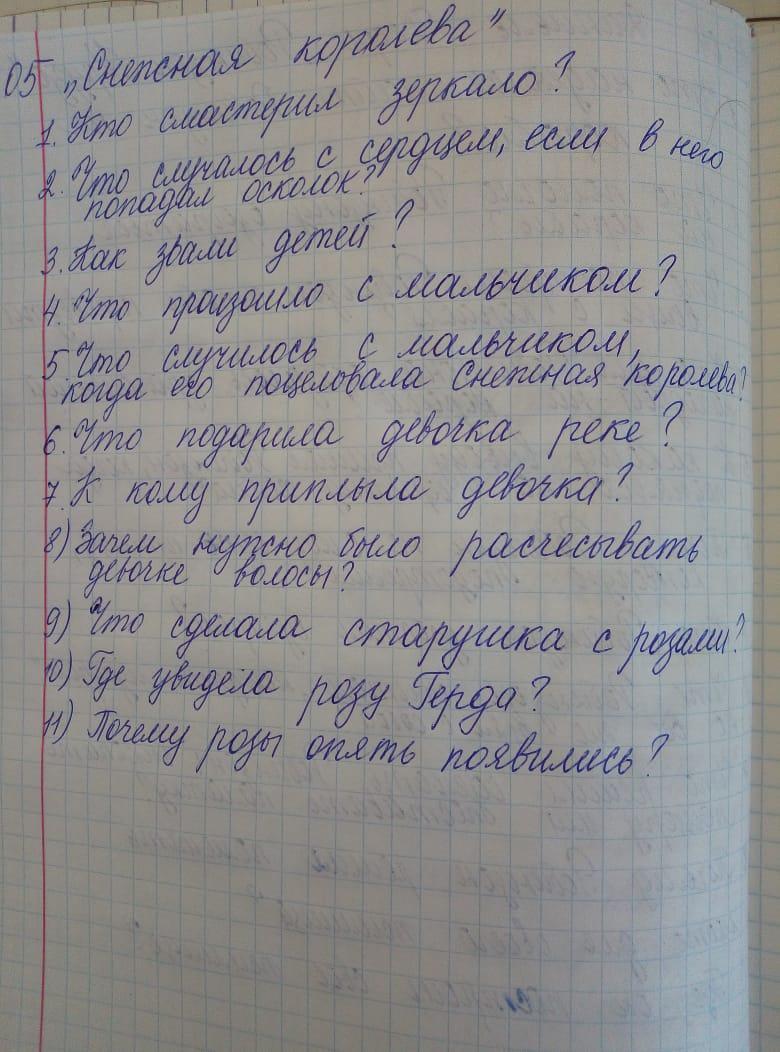 05 „Снежная королева"
1. Кто смастерил зеркало?
2. Что случалось с сердцем, если в него
попадал осколок?
3. Как звали детей?
4. Что произошло с мальчиком?
5 Что случилось с мальчиком,
когда его поцеловала Снежная королева?
6. Что подарила девочка реке?
7. К кому приплыла девочка?
8) Зачем нужно было расчесывать
девочке волосы?
9) Что сделала старушка с розами?
10) Где увидела розу Герда?
11) Почему розы опять появились?